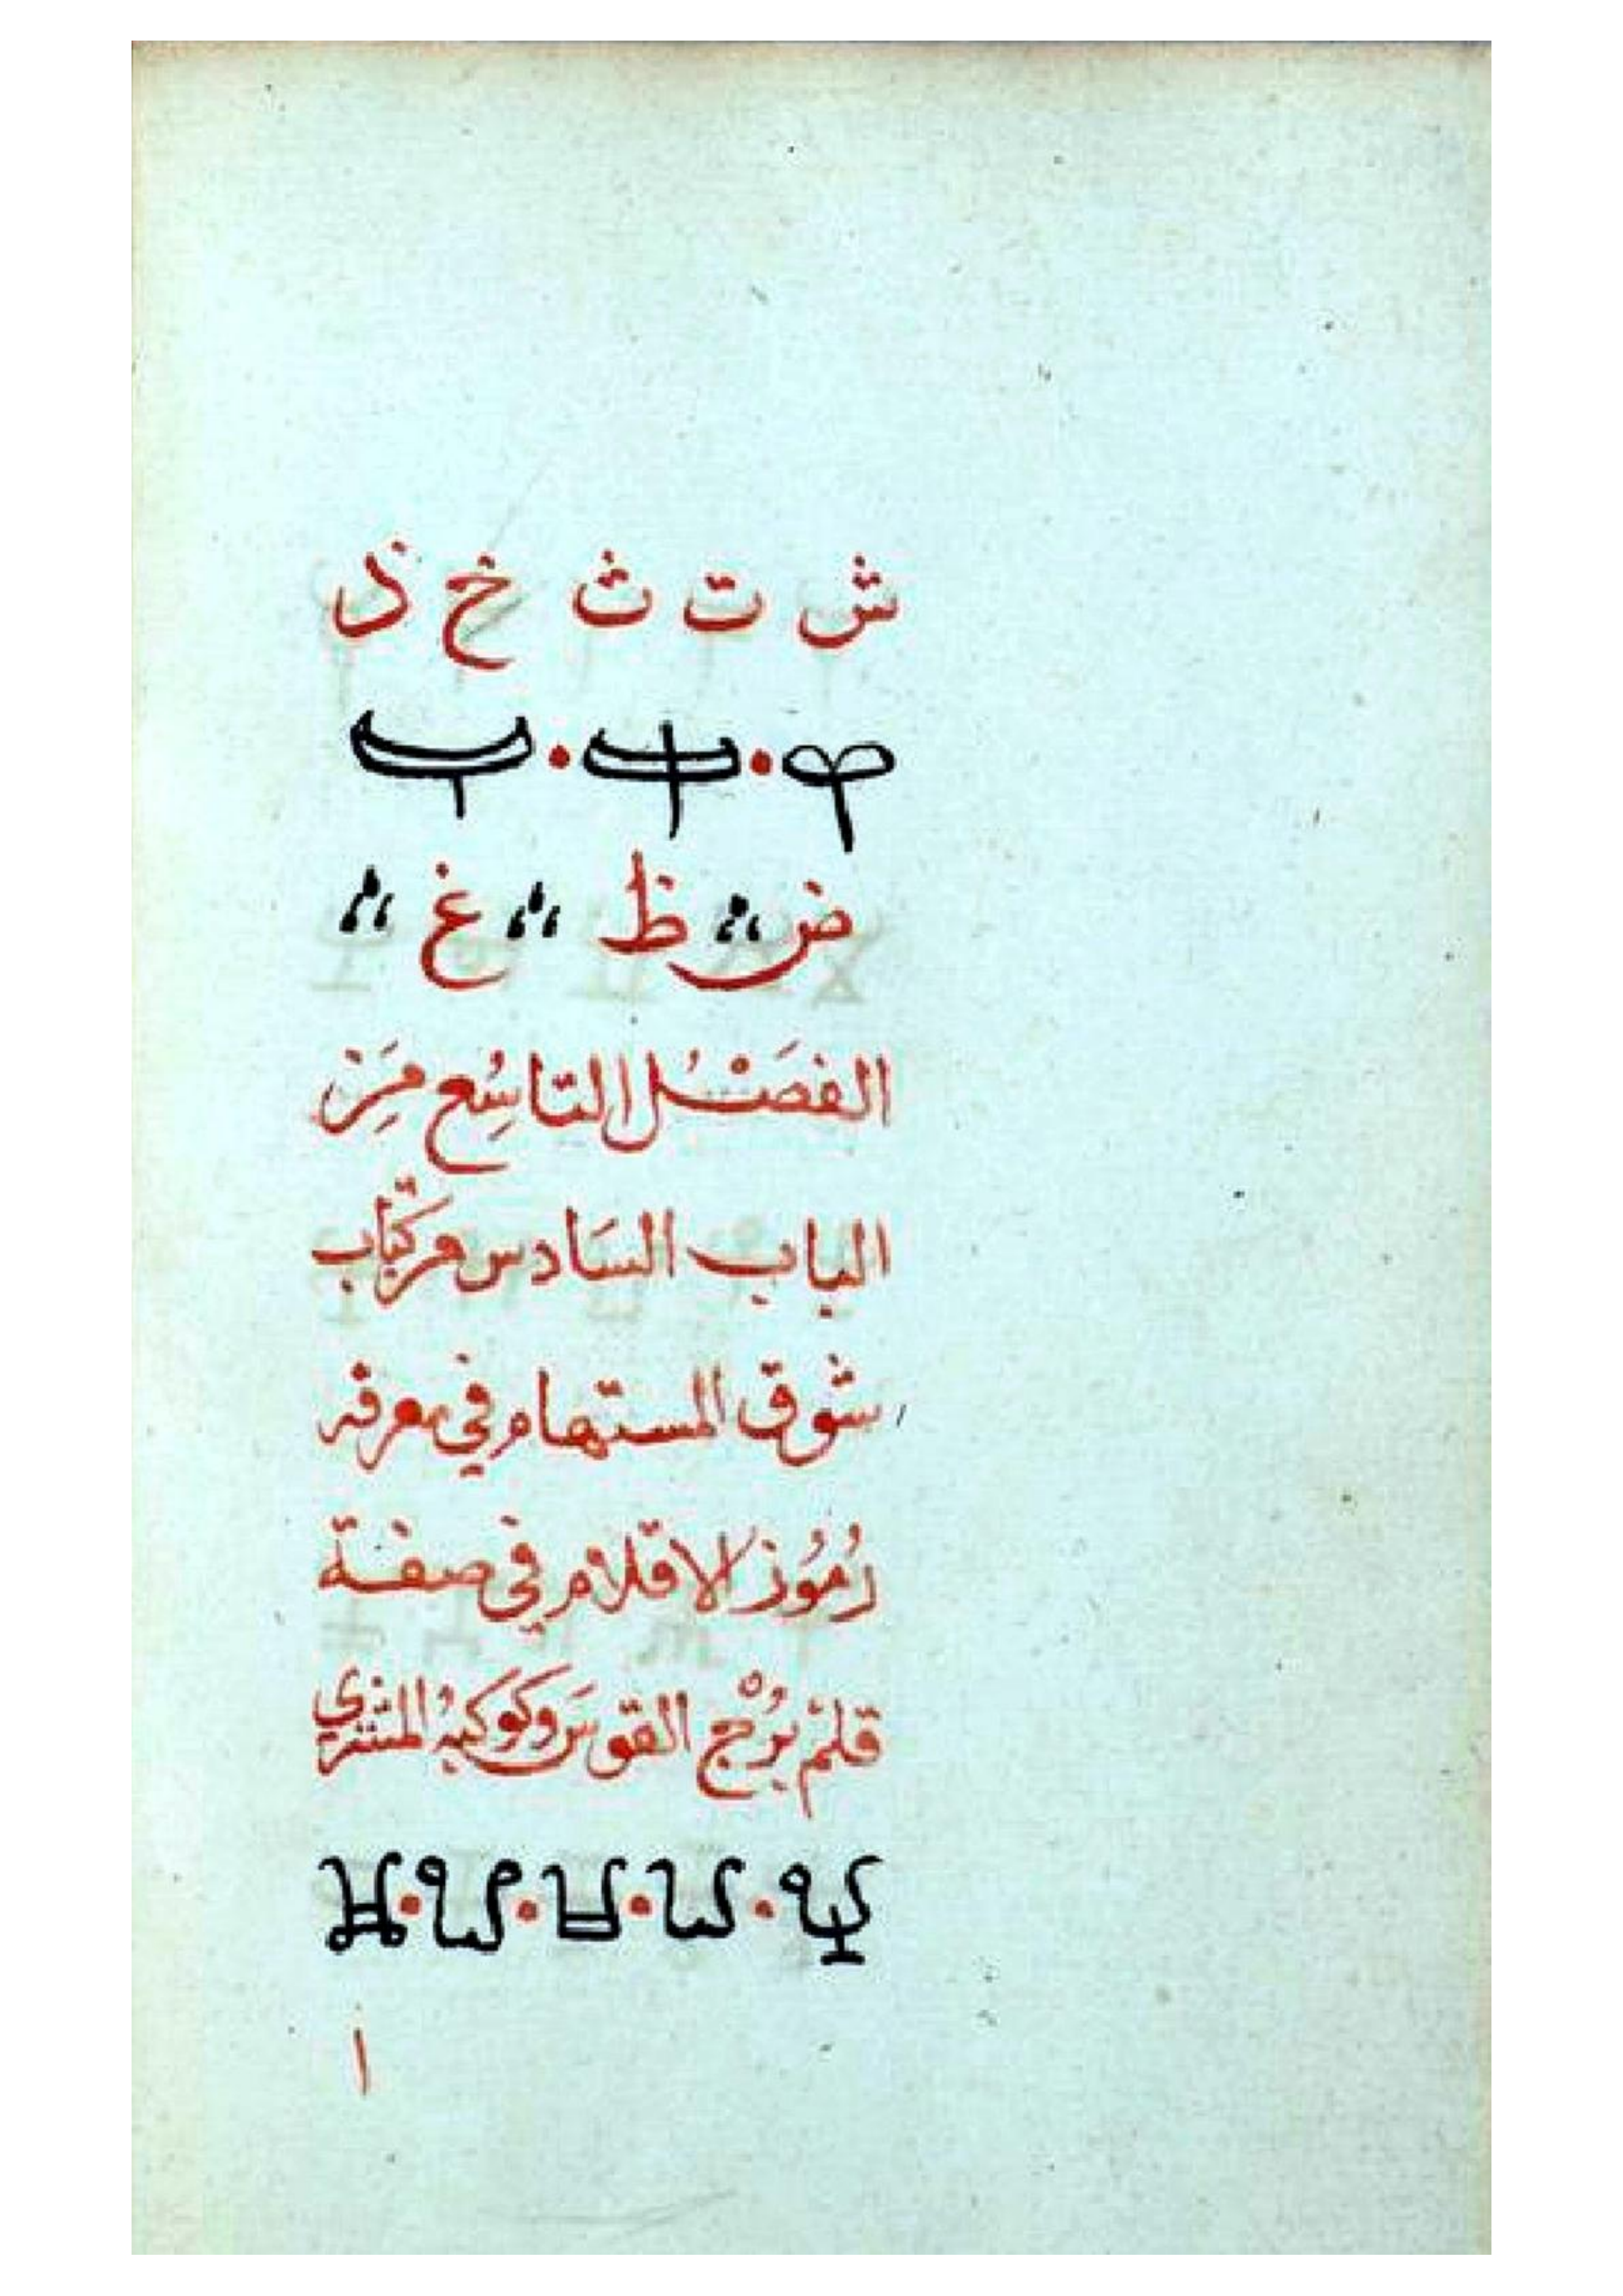 ش ت ث خ ذ
ض ظ غ
الفَصْلُ التاسِعُ مِنَ
الباب السَادس من كتاب
شوق المستهام في معرفة
رُمُوز الاقلام في صفة
قلم بُرْج القوس وكوكبهُ المشتري
ا